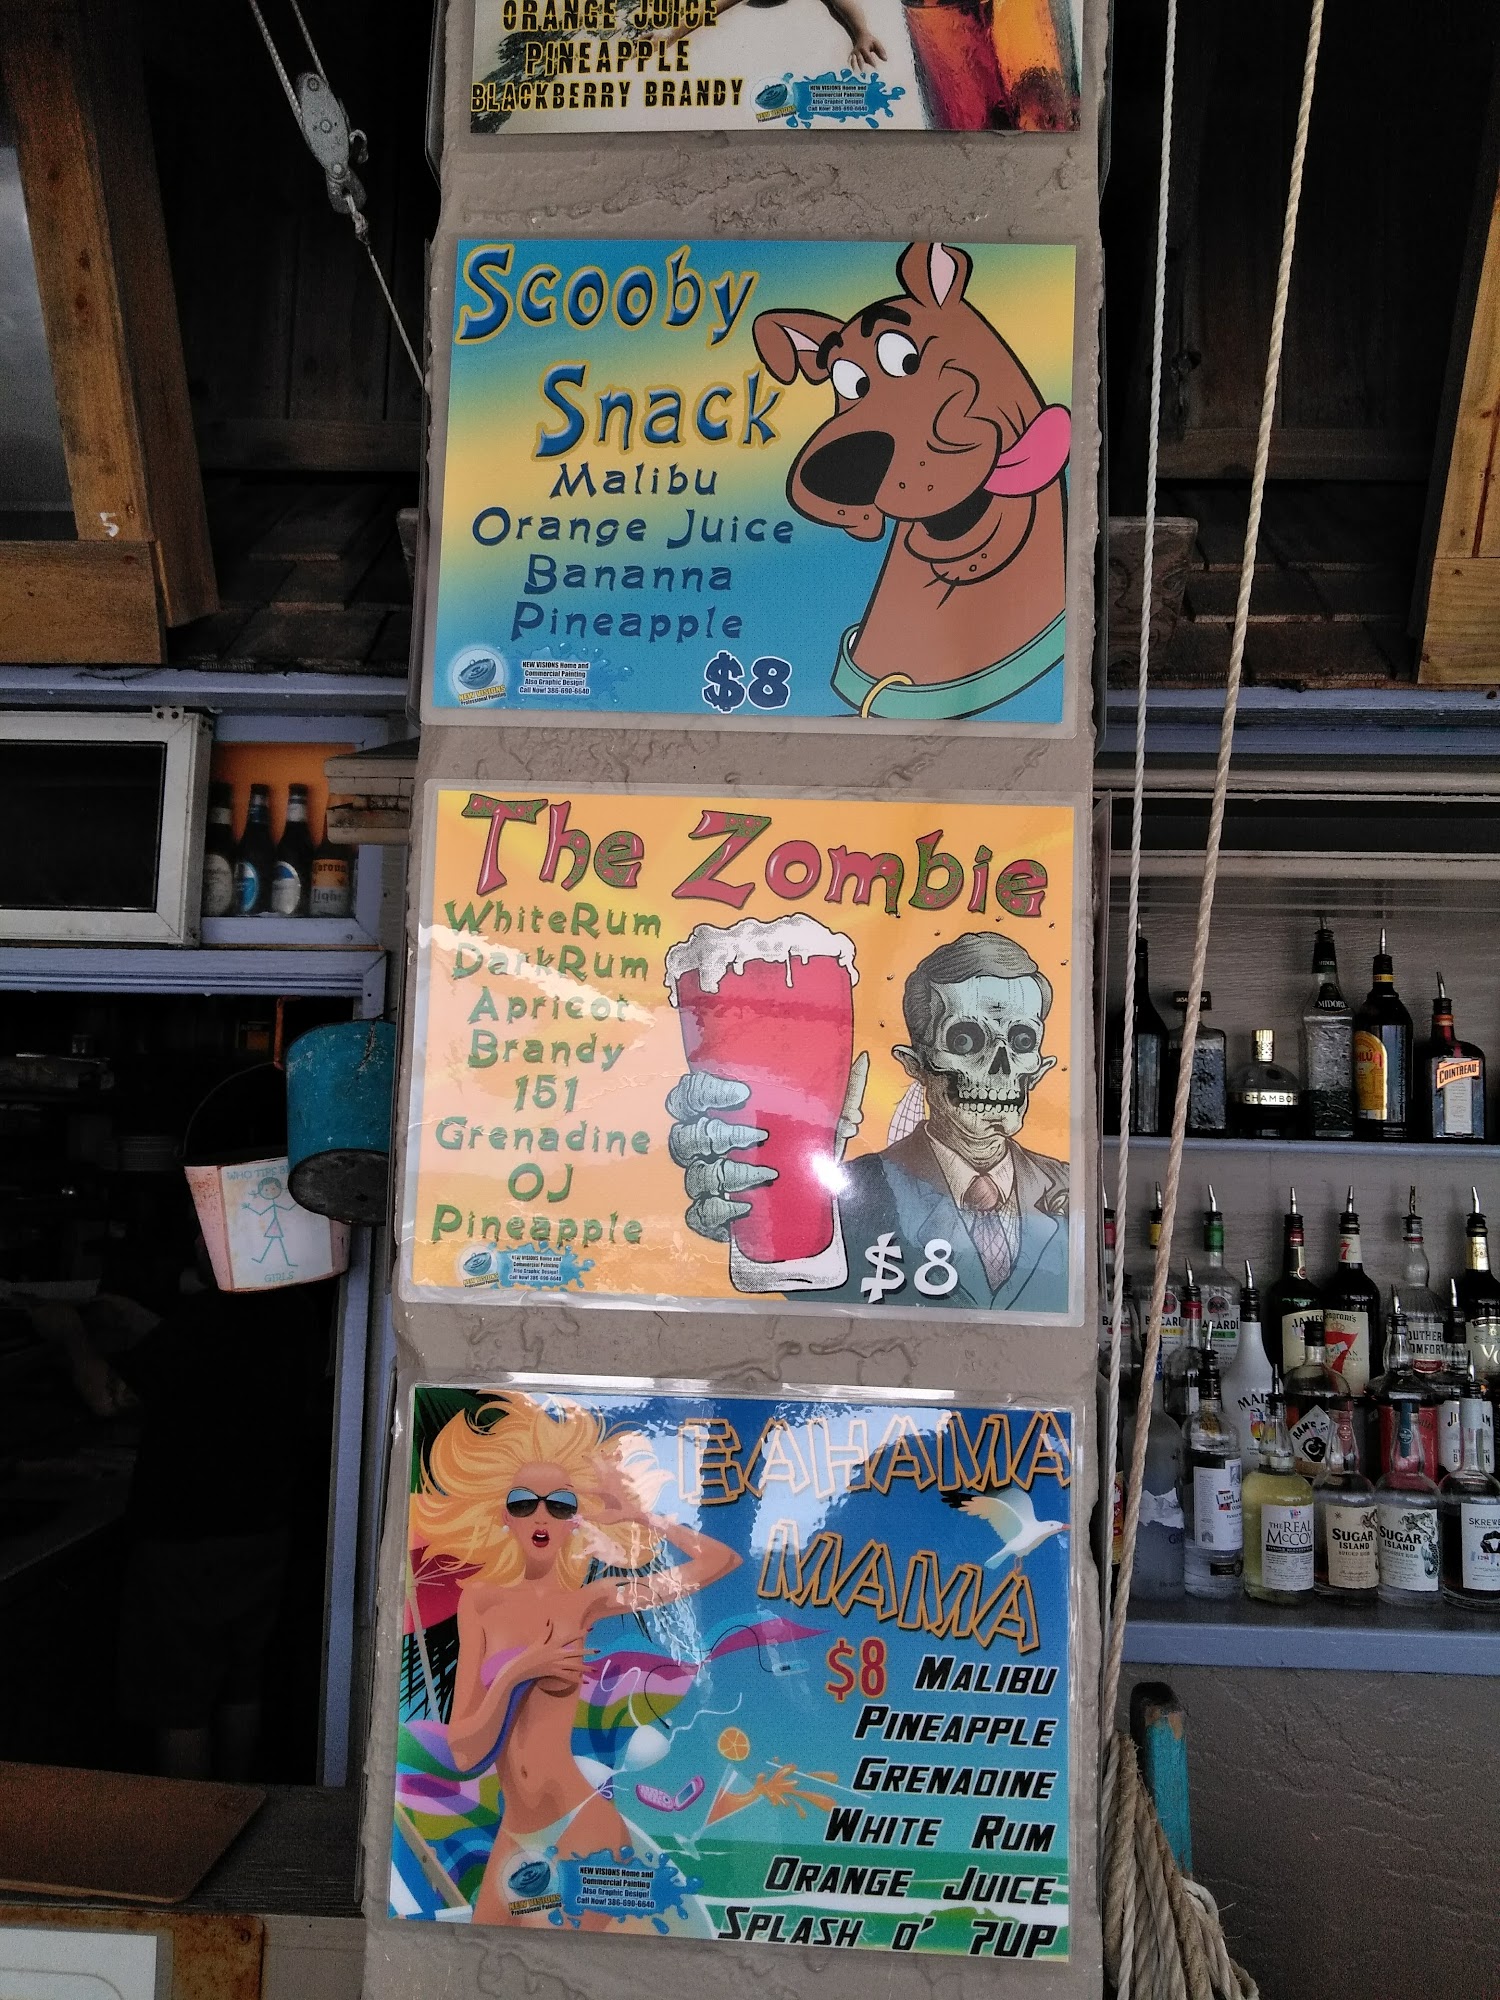 ORANGE JUICE
PINEAPPLE
BLACKBERRY BRANDY
NEW VISIONS Home and
Commercial Painting
Also Graphic Design!
Call Now! 386-690-6640
Scooby
Snack
Malibu
Orange Juice
Bananna
Pineapple
$8
NEW VISIONS
Professional Painting
NEW VISIONS Home and
Commercial Painting
Also Graphic Design!
Call Now! 386-690-6640
The Zombie
WhiteRum
DarkRum
Apricot
Brandy
151
Grenadine
OJ
Pineapple
$8
NEW VISIONS Home and
Commercial Painting
Also Graphic Design!
Call Now! 386-690-6640
BAHAMA
MAMA
$8 MALIBU
PINEAPPLE
GRENADINE
WHITE RUM
ORANGE JUICE
SPLASH O' 7UP
NEW VISIONS
Professional Painting
NEW VISIONS Home and
Commercial Painting
Also Graphic Design!
Call Now! 386-690-6640
5
WHO TIPS
GIRLS
MIDORI
CHAMBOR
COINTREAU
7
THE REAL
McCOY
SUGAR
ISLAND
SUGAR
ISLAND
SKREW